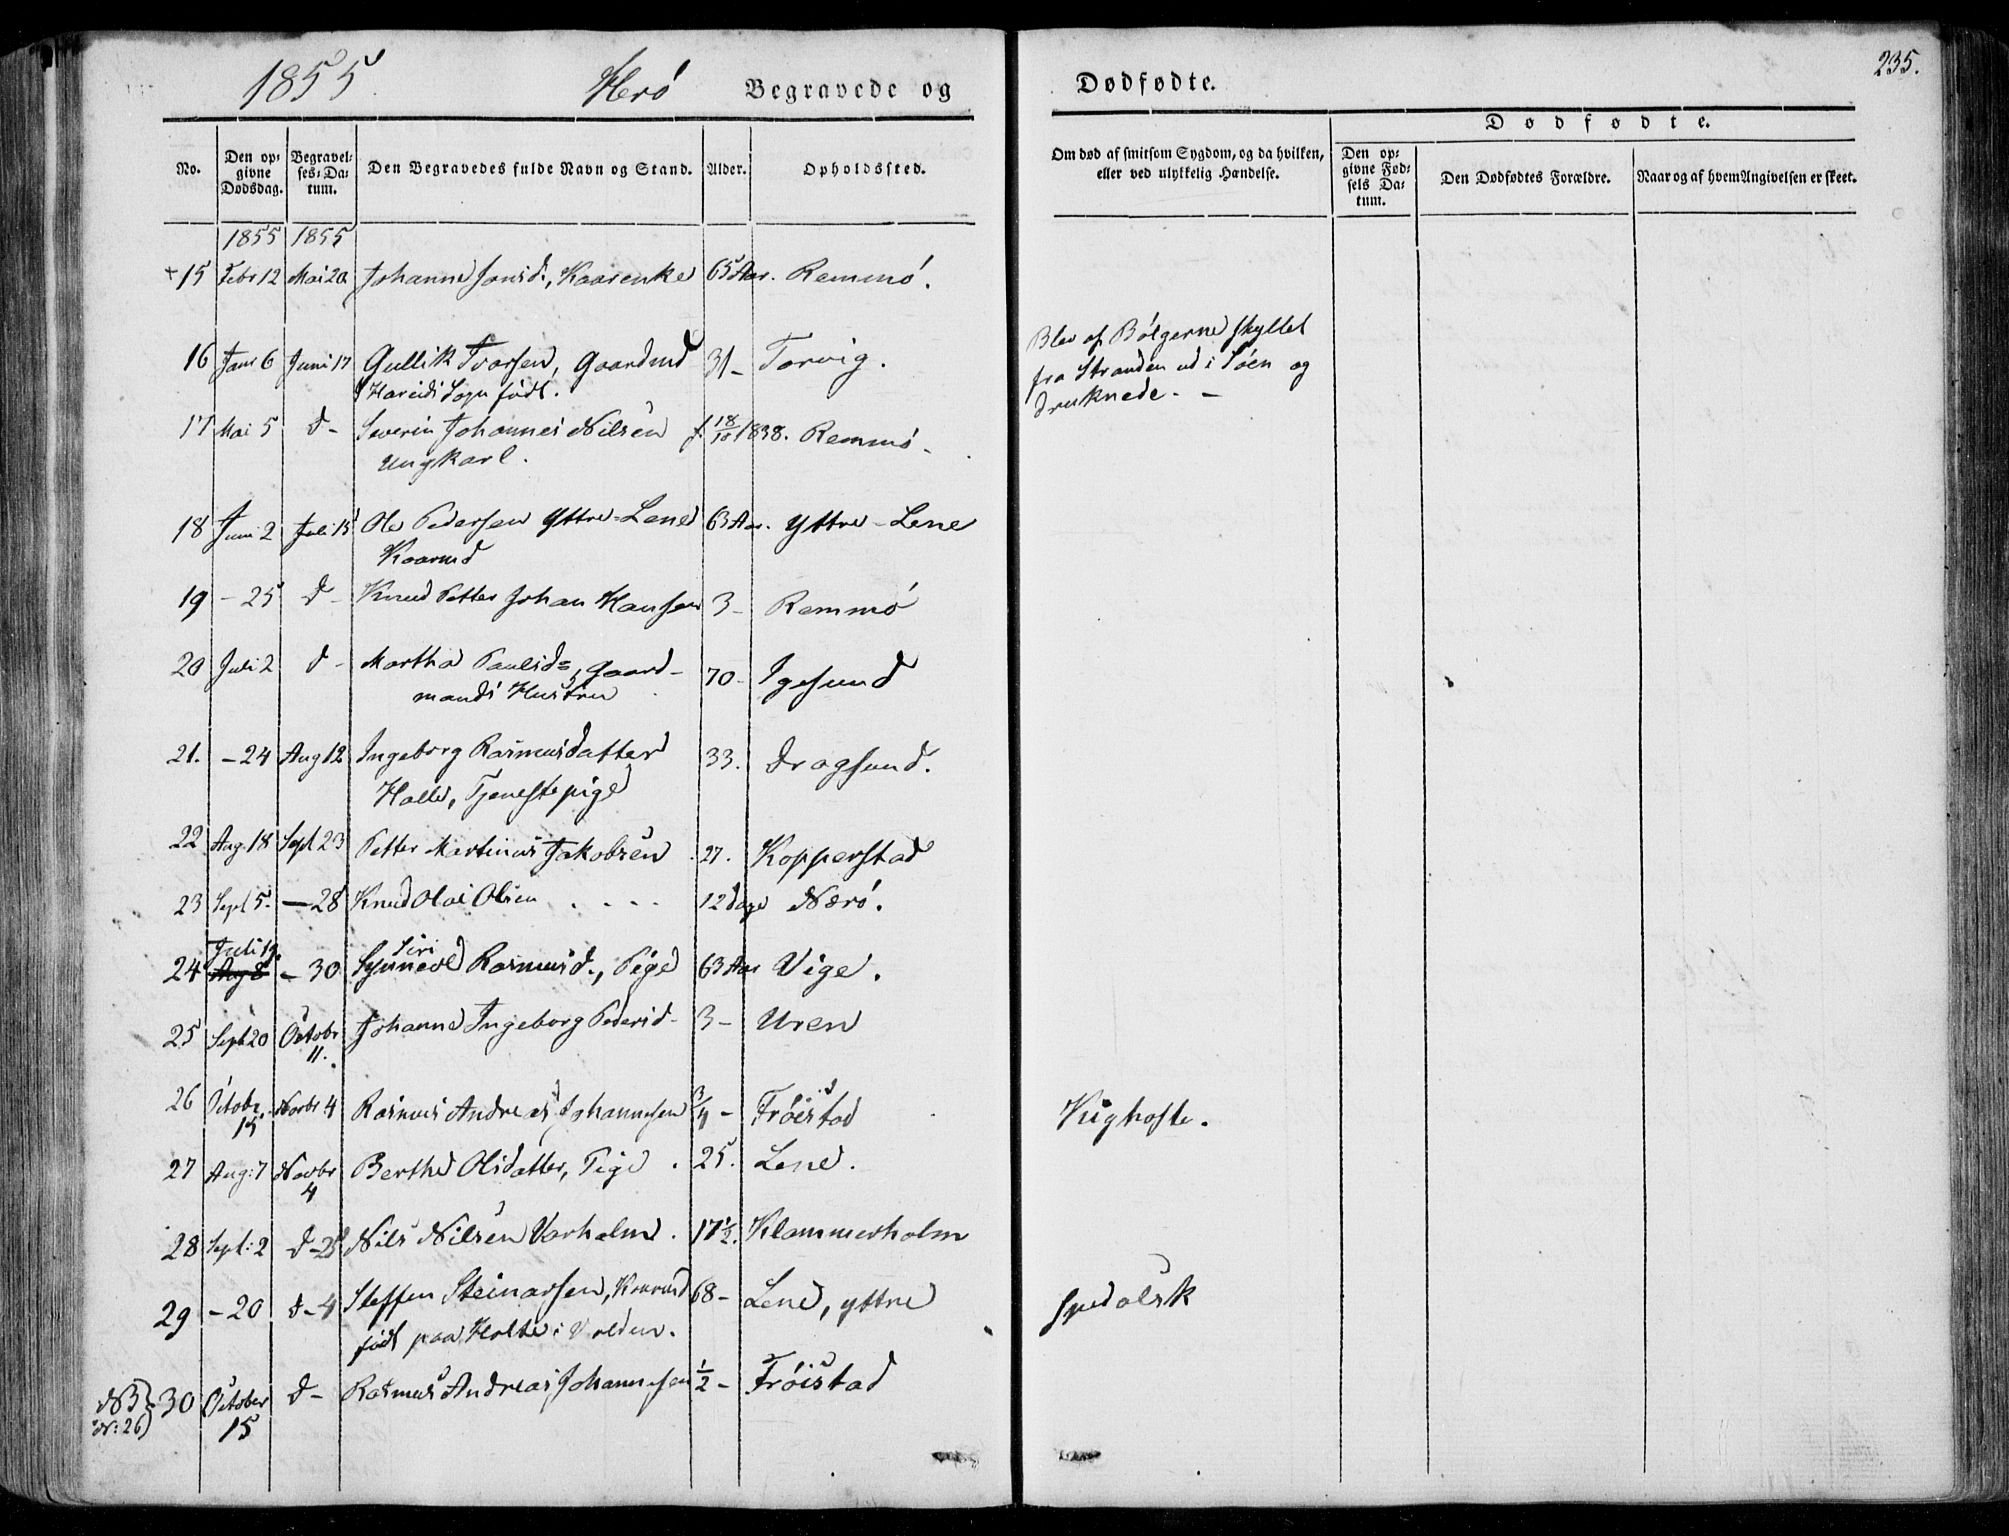 1855. Herö Begravede og Dødfødte. 235.
No. Den opgivne Dødsdag. Begravelses-Datum. Den Begravedes fulde Navn og Stand. Alder. Opholdssted. Om død af smitsom Sygdom, og da hvilken, eller ved ulykkelig Hændelse. Dødfødte.
Den opgivne Fødsels Datum. Den Dødfødtes Forældre. Naar og af hvem Angivelsen er skeet.
1855 1855
+15 Febr 12 Mai 20 Johanne Jonsd., Kaarenke 65 Aar. Remmö.
16 Janr 6 Juni 17 Gullik Ivarsen, Gaardmd 31- Torvig. Blev af Bölgerne skyllet
Hareids Sogn födt. fra Stranden ud i Söen og
druknede. -
17 Mai 5 d- Severin Johannes Nilsen f. 18/10 1838. Remmö.
Ungkarl.
18 Juni 2 Juli 15 Ole Pedersen Yttre-Lene 63 Aar. Yttre-Lene
Kaarmd
19 - 25 d- Knud Petter Johan Hansen 3- Remmö
20 Juli 2 d- Martha Paulsd=, Gaard- 70- Igesund
mands Hustru
21. - 24 Aug 12 Ingeborg Rasmusdatter 33. Dragsund.
Halle, Tjenestepige
22 Aug. 18 Sept 23 Petter Martinus Jakobsen 27. Kopperstad
23 Sept 5. - 28 Knud Olai Olsen . . . . 12 dage Nærö.
Juli 19. Siri
24 Aug 8 - 30 Synneve Rasmusd., Pige 63 Aar Vige.
25 Sept 20 Octobr Johanne Ingeborg Pedersd- 3- Uren
11.
26 Octobr. Novbr 4 Rasmus Andreas Johannesen 3/4 - Fröistad Kighoste.
15
27 Aug: 7 Novbr Berthe Olsdatter, Pige . 25. Lene.
4
28 Sept: 2 d- 25 Nils Nilsen Varholm . 17 1/2. Klammerholm
29 - 20 d- 4 Steffen Steinarsen, Kaarmd 68- Lene, yttre spedalsk
født paa Holte i Volden.
NB 30 October d- Rasmus Andreas Johannesen 1/2 - Fröistad
Nr: 26) 15